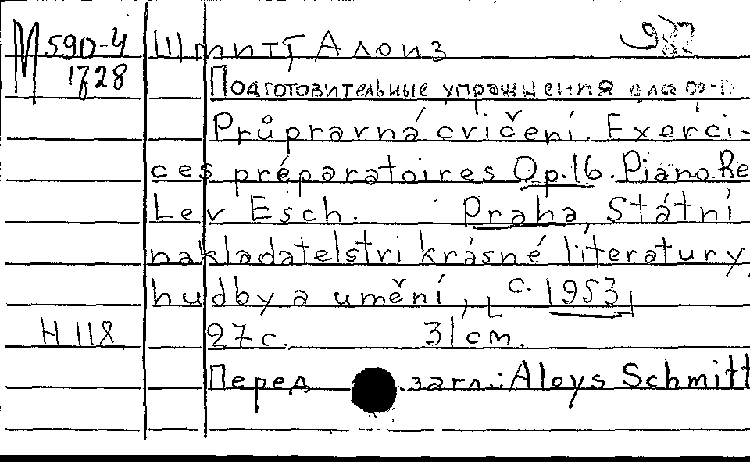 М 590-4 Шmитт Алоиз
1728 Подготовительные упражнения для ф-п
Průpravná cvičení. Exerci-
ces préparatoires Op.16. Piano Re
Lev Esch. Praha, Státní
nakladatelství krásné literatury,
hudby a umění, [c. 1953]
Н 118 27 с. 31 cm.
Перед загл.: Aloys Schmitt